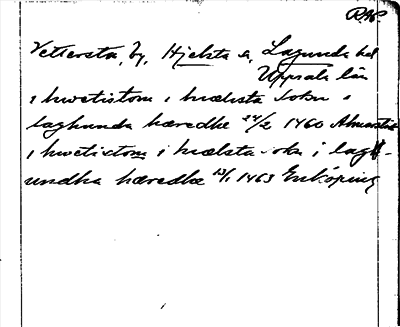 RAP.
Vettersta, by, Hjelsta sn, Lagunda hd
Uppsala län
i hwetistom i hiælista sokn i
laghunda hæredhe 24/2 1460 Almarestäk
i hwetixtom i hiælsta sokn i lagh-
undha hæredhe 13/1 1463 Enköping